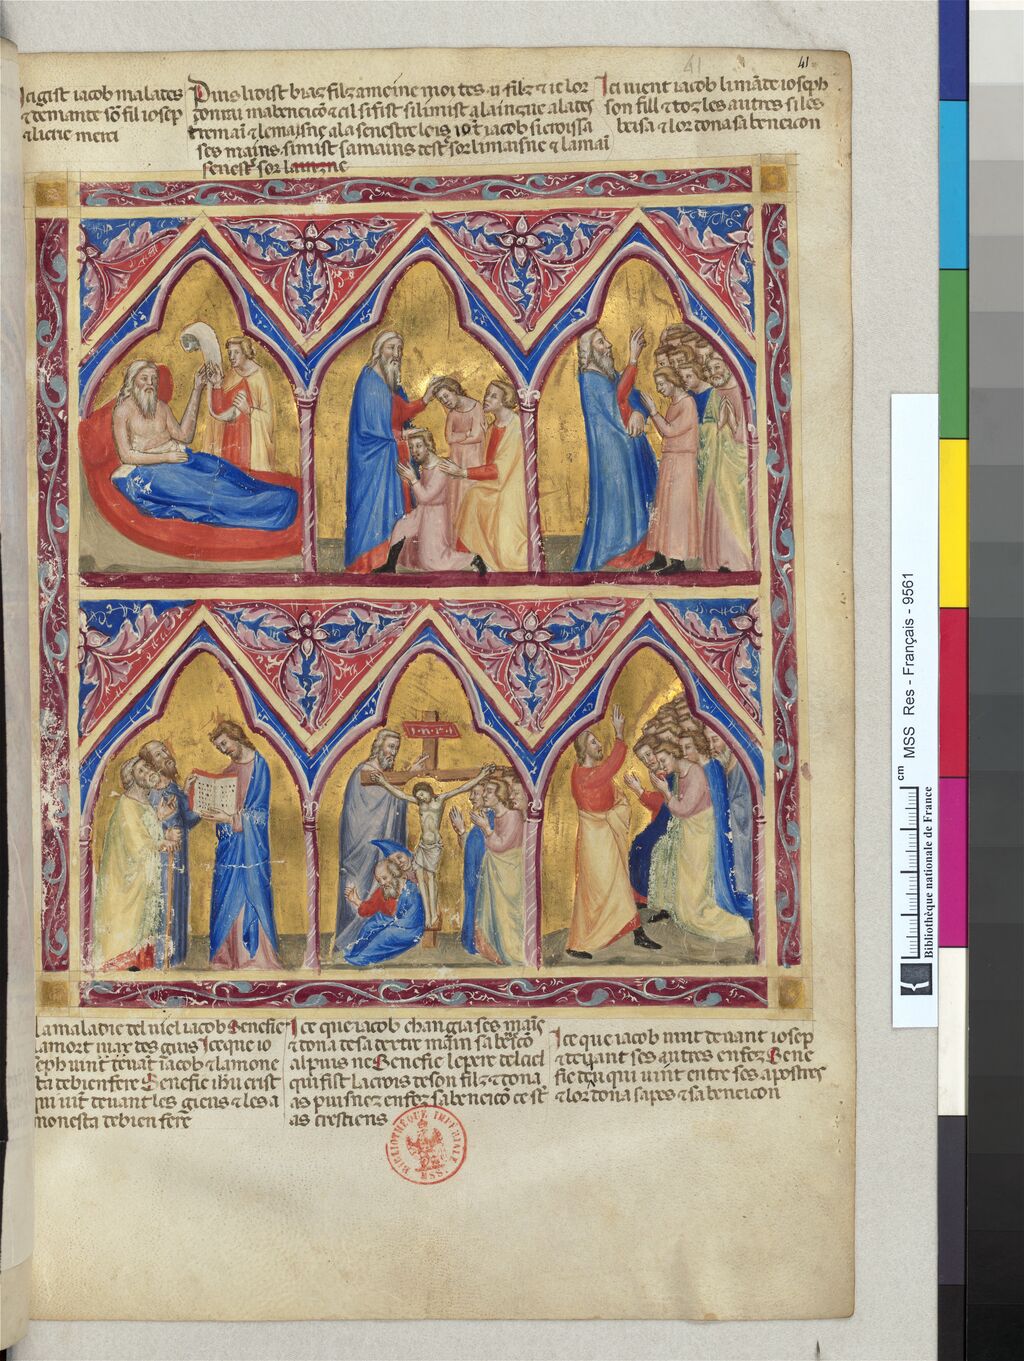 41
41
Ici gist iacob malates
& demante sō fil iosep
& li crie merci
Puis li dist biaz filz ameine moi tes .ii. filz & ie lor
donrai ma beneicō & cil si fist si li mist a lainzne a lates
tre maī & le maisne a la senestre
iacob si croissa
ses mains si mist sa mains dest' sor li maisne & la maī
senest' sor lainzne
Ici vient iacob li māde ioseph
son fill & toz les autres si les
beisa & lor dona sa beneicon
I·N·R·I
La maladie del viel iacob Senefie
la mort
des giuis Ice que io
seph vint deuāt iacob & la mone
ta de bien fere Senefie ihū crist
qui vīt deuant les gieus & les a
monesta de bien fere
Ice que iacob changia ses maīs
& dona de sa destre maīn sa beīcō
al puis ne Senefie le pere del ciel
qui fist la crois de son filz & dona
as puisnez enfez sa beneicō ce st'
as crestiens
Ice que iacob vint deuant iosep
& deuant ses autres enfez Sene
fie deu qui vint entre ses apostres
& lor dona sa pes & sa beneicon
BIBLIOTHÈQUE IMPÉRIALE MSS.
MSS Res - Français - 9561
cm
Bibliothèque nationale de France